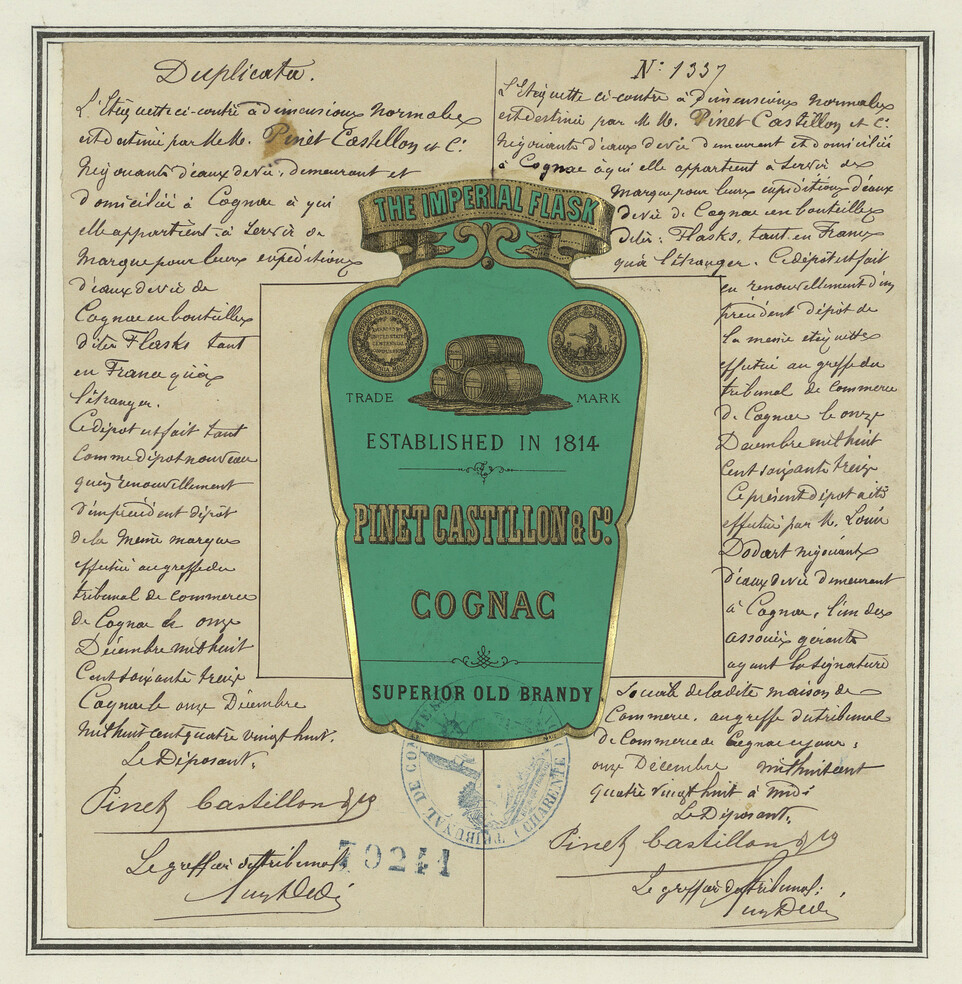 Duplicata.
L'Etiquette ci-contre à dimensions normales
est destinée par M.M. Pinet Castillon et Cie
Négociants d'eaux de vie, demeurant et
domiciliés à Cognac à qui
elle appartient à servir de
marque pour leurs expéditions
d'eaux de vie de
Cognac en bouteilles
dites Flasks tant
en France qu'à
l'étranger.
Ce dépôt est fait tant
comme dépôt nouveau
qu'en renouvellement
d'un précédent dépôt
de la même marque
effectué au greffe du
tribunal de commerce
de Cognac le onze
Décembre mil huit
Cent soixante treize
Cognac le onze Décembre
mil huit cent quatre vingt huit.
Le Déposant.
Pinet Castillon & Co
Le greffier du tribunal
N° 1337
L'Etiquette ci-contre à dimensions normales
est destinée par M.M. Pinet Castillon et Cie
Négociants d'eaux de vie demeurant et domiciliés
à Cognac à qui elle appartient à servir de
marque pour leurs expéditions d'eaux
de vie de Cognac en bouteilles
dites: Flasks, tant en France
qu'à l'étranger. Ce dépôt est fait
en renouvellement d'un
précédent dépôt de
la même étiquette
effectué au greffe du
tribunal de Commerce
de Cognac le onze
Décembre mil huit
Cent soixante treize
Ce présent dépôt a été
effectué par M. Louis
Dodart négociant
d'eaux de vie demeurant
à Cognac, l'un des
associés gérants
ayant la signature
Sociale de la dite maison de
Commerce. au greffe du tribunal
de Commerce de Cognac ce jour:
onze Décembre mil huit cent
quatre vingt huit à midi
Le Déposant.
Pinet Castillon & Co
Le greffier du tribunal:
THE IMPERIAL FLASK
TRADE MARK
ESTABLISHED IN 1814
PINET CASTILLON & Co.
COGNAC
SUPERIOR OLD BRANDY
TRIBUNAL DE COMMERCE
CHARENTE